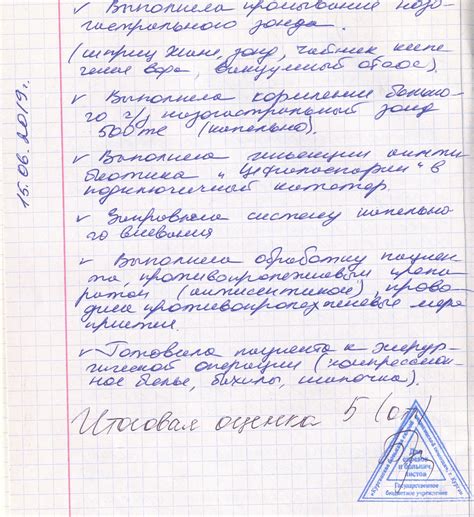 ✓ Выполнила промывание назо-
гастрального зонда.
(шприц Жане, зонд, чайник кипе-
ченая вода, вакуумный отсос).
✓ Выполнила кормление больно-
го ч/з назогастральный зонд
500 мл (капельно).
✓ Выполнила инъекции анти-
биотика „Цефтолоспорин" в
подключичной катетер.
✓ Заправляла систему капельно-
го вливания
✓ Выполнила обработку пациен-
та, противопролежневым препа-
ратом (антисептиком), прово-
дила противопролежневые меро
приятия.
✓ Готовила пациента к хирур-
гической операции (компрессион-
ное белье, бахилы, шапочка).
Итоговая оценка 5 (от)
15.06.2019г.
Для
справок
и больнич.
листов
Государственное
бюджетное учреждение